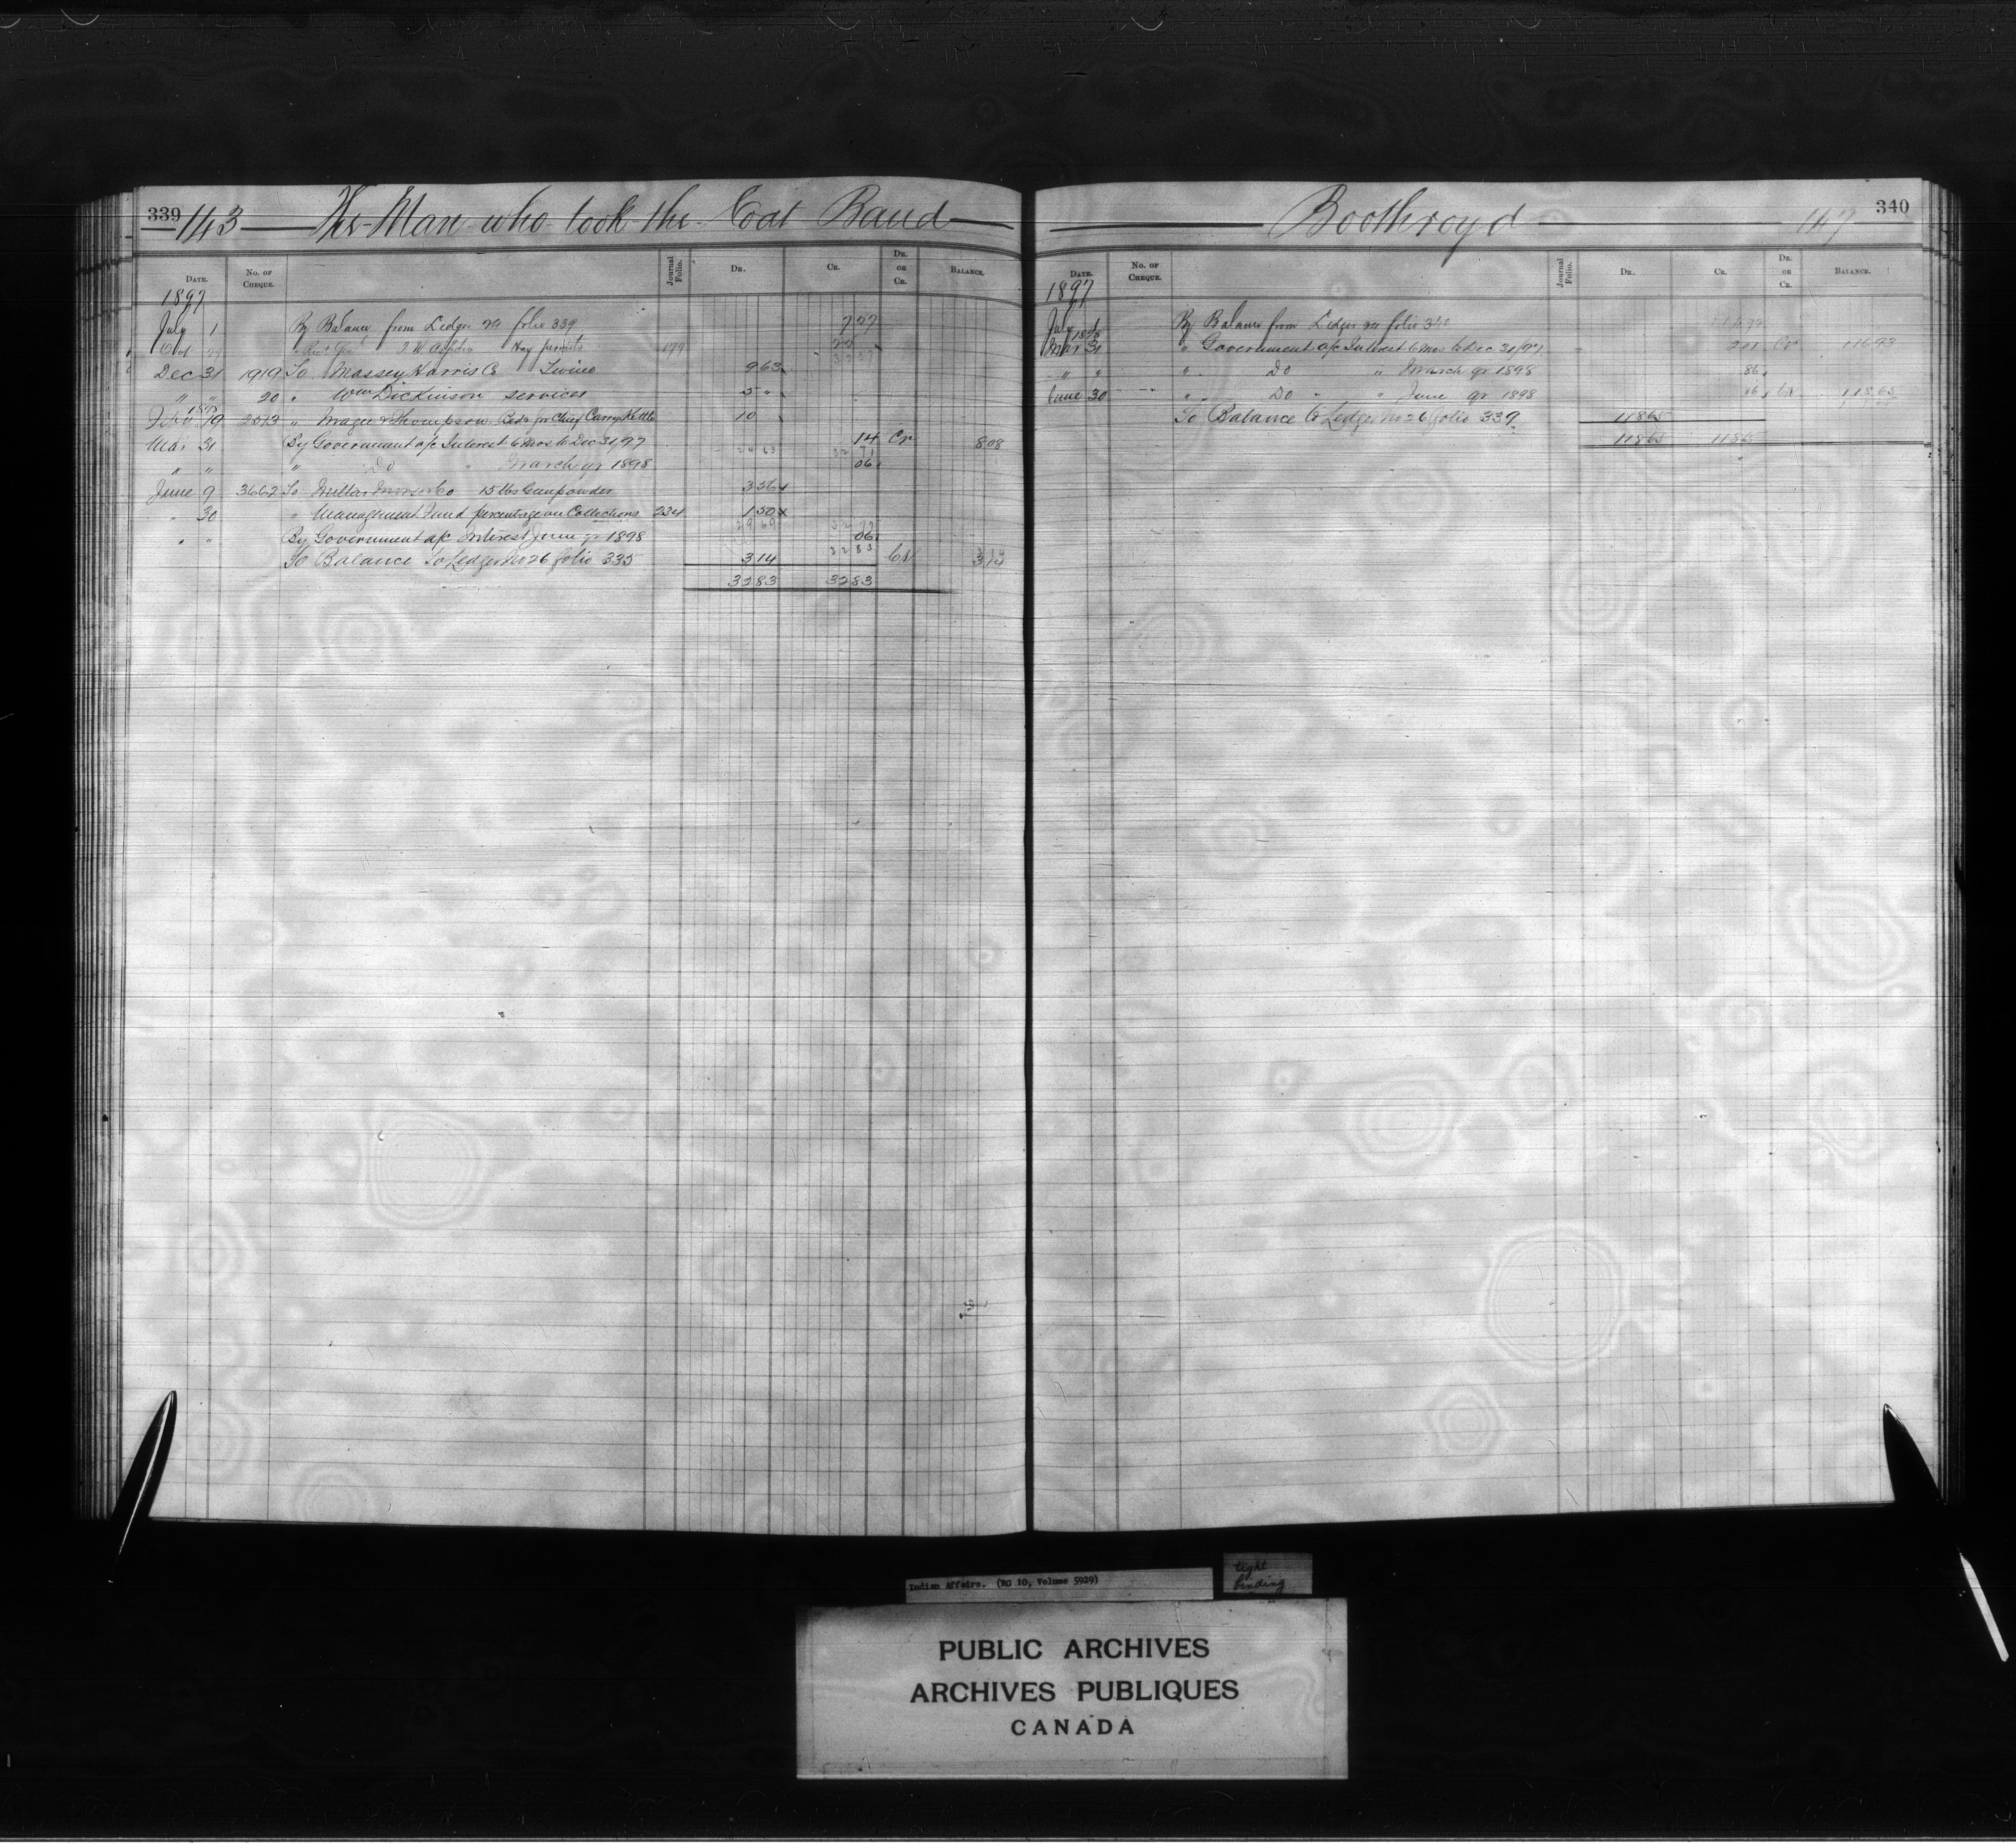 339 143 The Man who took the Coat Band
Date. No. of Cheque. Journal Folio. Dr. Cr. Dr. or Cr. Balance.
1897
July 1 By Balance from Ledger folio 339 7 57
Oct Hay permits 179 25
32 57
Dec 31 1919 To Massey Harris Co Twine 9 63
" " 20 " Wm Dickinson services 5 "
1898
Feby 19 2513 " Magee & Thompson Beds for Chief Carry Kettle 10 "
Mar 31 By Government a/c Interest 6 Mos to Dec 31/97 14 Cr 8 08
24 63 32 71
" " " Do " March qr 1898 06
June 9 3662 To Millar Morse & Co 15 lbs Gunpowder 3 56
" 30 " Management Fund percentage on Collections 234 1 50
29 69 32 77
" " By Government a/c Interest June qr 1898 06
32 83
To Balance To Ledger No 26 folio 335 3 14 Cr 3 14
32 83 32 83
Boothroyd 147 340
Date. No. of Cheque. Journal Folio. Dr. Cr. Dr. or Cr. Balance.
1897
July 1 By Balance from Ledger folio 340
1898
Mar 31 " Government a/c Interest 6 mos to Dec 31/97 2 01 Cr 116 93
" " " Do " March qr 1898 86
June 30 " Do " June qr 1898 86 Cr 118 65
To Balance to Ledger No 26 folio 339 118 65
118 65 118 65
Indian Affairs. (RG 10, Volume 5929)
tight
binding
PUBLIC ARCHIVES
ARCHIVES PUBLIQUES
CANADA